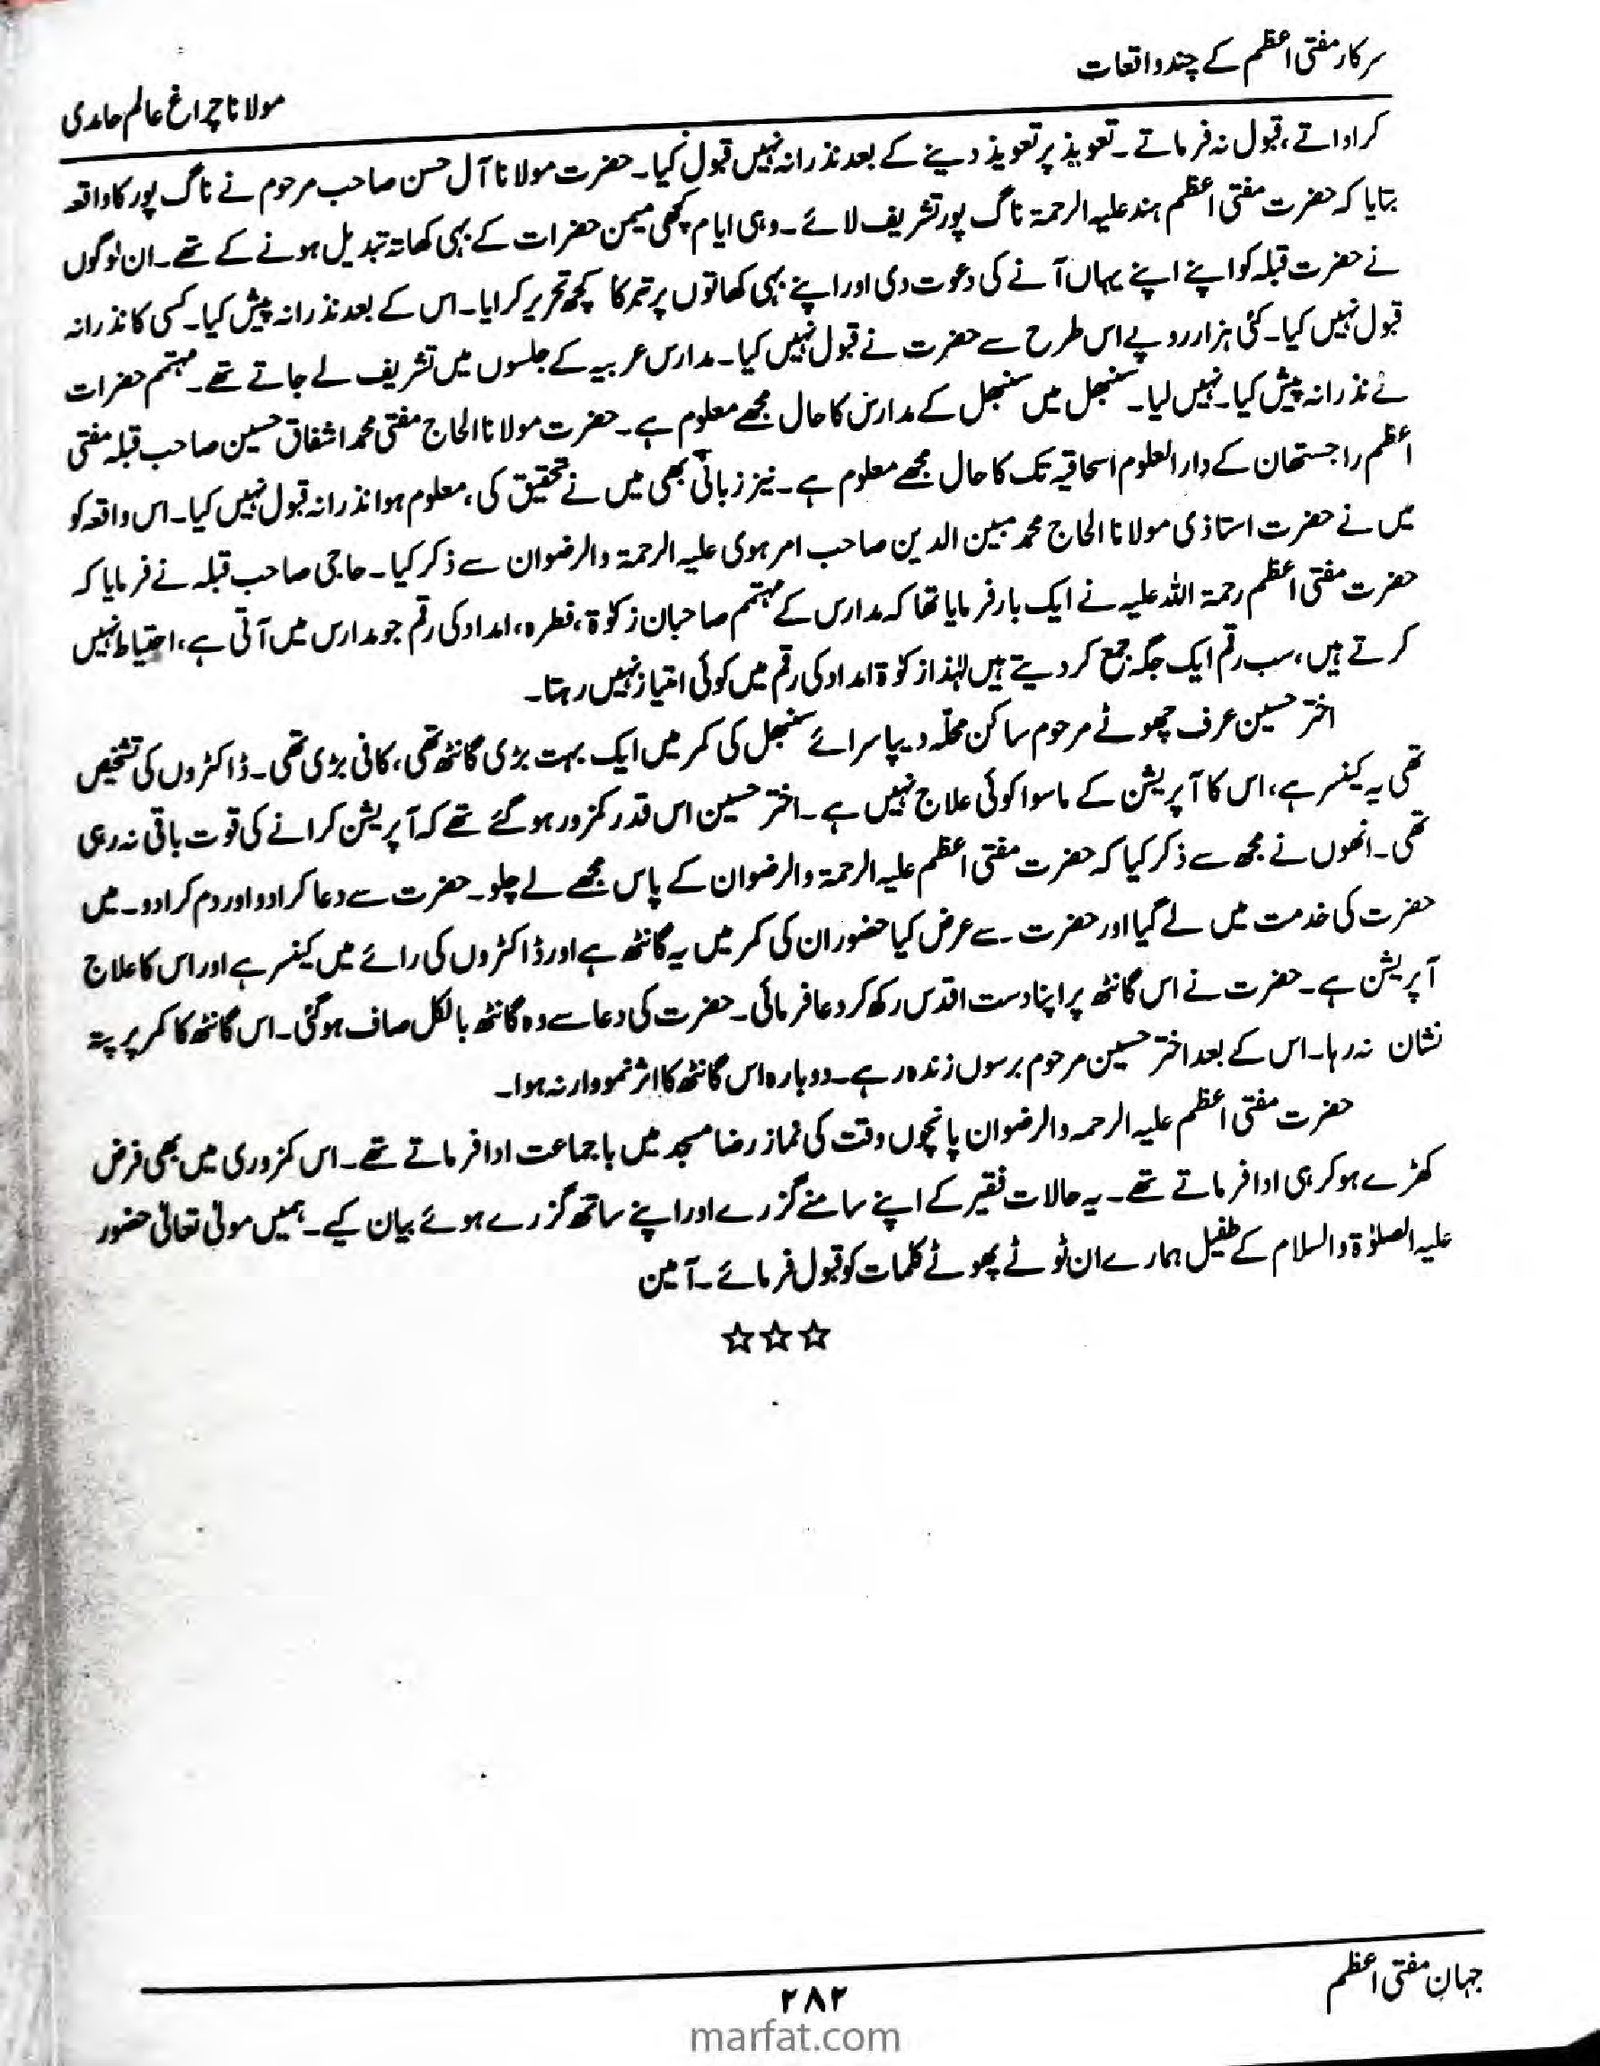 سرکار مفتی اعظم کے چند واقعات
مولانا چراغ عالم حامدی
کراداتے، قبول نہ فرماتے۔ تعویذ پر تعویذ دینے کے بعد نذرانہ نہیں قبول کیا۔ حضرت مولانا آل حسن صاحب مرحوم نے ناگ پور کا واقعہ
بتایا کہ حضرت مفتی اعظم ہند علیہ الرحمۃ ناگ پور تشریف لائے۔ وہی ایام کچھی میمن حضرات کے بہی کھاتہ تبدیل ہونے کے تھے۔ ان لوگوں
نے حضرت قبلہ کو اپنے اپنے یہاں آنے کی دعوت دی اور اپنے بہی کھاتوں پر تبرکا کچھ تحریر کرایا۔ اس کے بعد نذرانہ پیش کیا۔ کسی کا نذرانہ
قبول نہیں کیا۔ کئی ہزار روپے اس طرح سے حضرت نے قبول نہیں کیا۔ مدارس عربیہ کے جلسوں میں تشریف لے جاتے تھے۔ مہتمم حضرات
نے نذرانہ پیش کیا۔ نہیں لیا۔ سنبھل میں سنبھل کے مدارس کا حال مجھے معلوم ہے۔ حضرت مولانا الحاج مفتی محمد اشفاق حسین صاحب قبلہ مفتی
اعظم راجستھان کے دارالعلوم اسحاقیہ تک کا حال مجھے معلوم ہے۔ نیز زبانی بھی میں نے تحقیق کی، معلوم ہوا نذرانہ قبول نہیں کیا۔ اس واقعہ کو
میں نے حضرت استاذی مولانا الحاج محمد مبین الدین صاحب امرہوی علیہ الرحمۃ والرضوان سے ذکر کیا۔ حاجی صاحب قبلہ نے فرمایا کہ
حضرت مفتی اعظم رحمۃ اللہ علیہ نے ایک بار فرمایا تھا کہ مدارس کے مہتمم صاحبان زکوٰۃ، فطرہ، امداد کی رقم جو مدارس میں آتی ہے، احتیاط نہیں
کرتے ہیں، سب رقم ایک جگہ جمع کر دیتے ہیں لہٰذا زکوٰۃ امداد کی رقم میں کوئی امتیاز نہیں رہتا۔
اختر حسین عرف چھوٹے مرحوم ساکن محلّہ دیپا سرائے سنبھل کی کمر میں ایک بہت بڑی گانٹھ تھی، کافی بڑی تھی۔ ڈاکٹروں کی تشخیص
تھی یہ کینسر ہے، اس کا آپریشن کے ماسوا کوئی علاج نہیں ہے۔ اختر حسین اس قدر کمزور ہو گئے تھے کہ آپریشن کرانے کی قوت باقی نہ رہی
تھی۔ انھوں نے مجھ سے ذکر کیا کہ حضرت مفتی اعظم علیہ الرحمۃ والرضوان کے پاس مجھے لے چلو۔ حضرت سے دعا کرا دو اور دم کرا دو۔ میں
حضرت کی خدمت میں لے گیا اور حضرت سے عرض کیا حضور ان کی کمر میں یہ گانٹھ ہے اور ڈاکٹروں کی رائے میں کینسر ہے اور اس کا علاج
آپریشن ہے۔ حضرت نے اس گانٹھ پر اپنا دست اقدس رکھ کر دعا فرمائی۔ حضرت کی دعا سے وہ گانٹھ بالکل صاف ہو گئی۔ اس گانٹھ کا کمر پر پتہ
نشان نہ رہا۔ اس کے بعد اختر حسین مرحوم برسوں زندہ رہے۔ دوبارہ اس گانٹھ کا اثر نمودار نہ ہوا۔
حضرت مفتی اعظم علیہ الرحمہ والرضوان پانچوں وقت کی نماز رضا مسجد میں با جماعت ادا فرماتے تھے۔ اس کمزوری میں بھی فرض
کھڑے ہو کر ہی ادا فرماتے تھے۔ یہ حالات فقیر کے اپنے سامنے گزرے اور اپنے ساتھ گزرے ہوئے بیان کیے۔ ہمیں مولیٰ تعالیٰ حضور
علیہ الصلوٰۃ والسلام کے طفیل ہمارے ان ٹوٹے پھوٹے کلمات کو قبول فرمائے۔ آمین
☆☆☆
جہان مفتی اعظم
۲۸۲
marfat.com